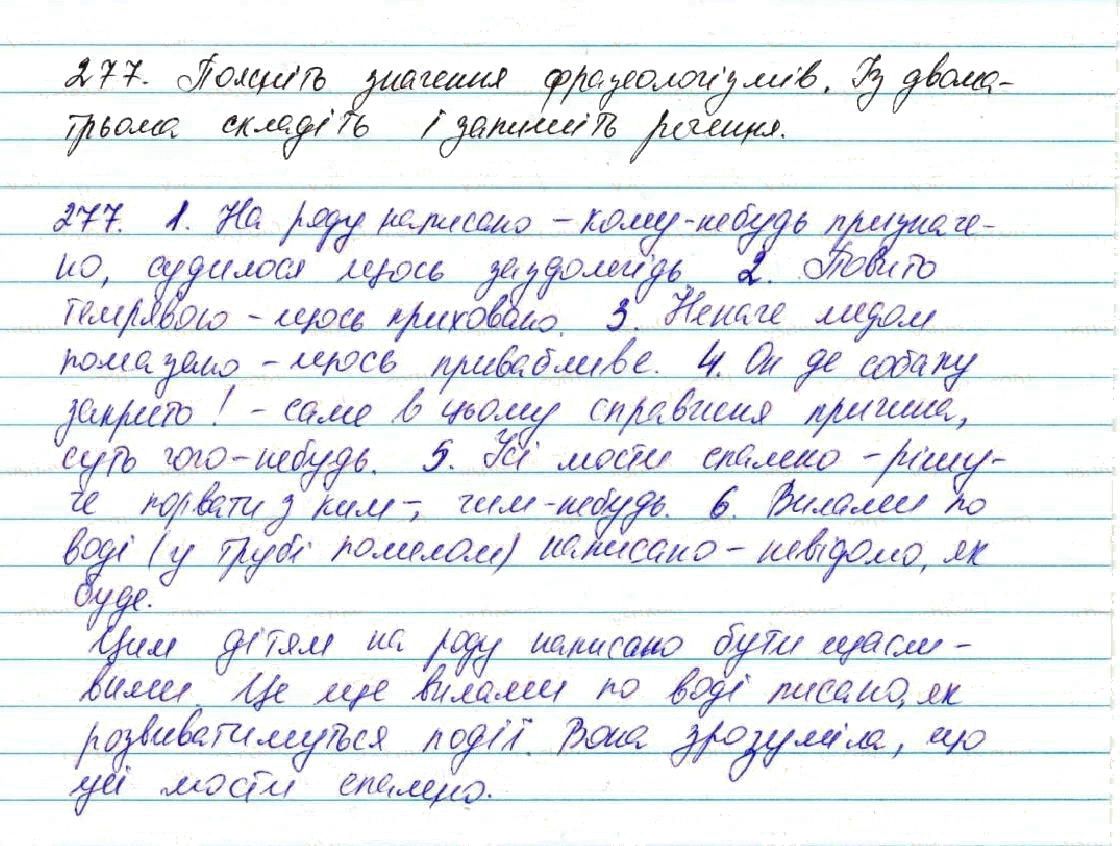 277. Поясніть значення фразеологізмів. Із двома-
трьома складіть і запишіть речення.
277. 1. На роду написано – кому-небудь призначе-
но, судилося щось заздалегідь. 2. Повито
темрявою – щось приховано. 3. Неначе медом
помазано – щось привабливе. 4. Он де собаку
закрито! – саме в цьому справжня причина,
суть чого-небудь. 5. Усі мости спалено – рішу-
че порвати з ким-, чим-небудь. 6. Вилами по
воді (у трубі помелом) написано – невідомо, як
буде.
Цим дітям на роду написано бути щасли-
вими. Це ще вилами по воді писано, як
розвиватимуться події. Вона зрозуміла, що
усі мости спалено.